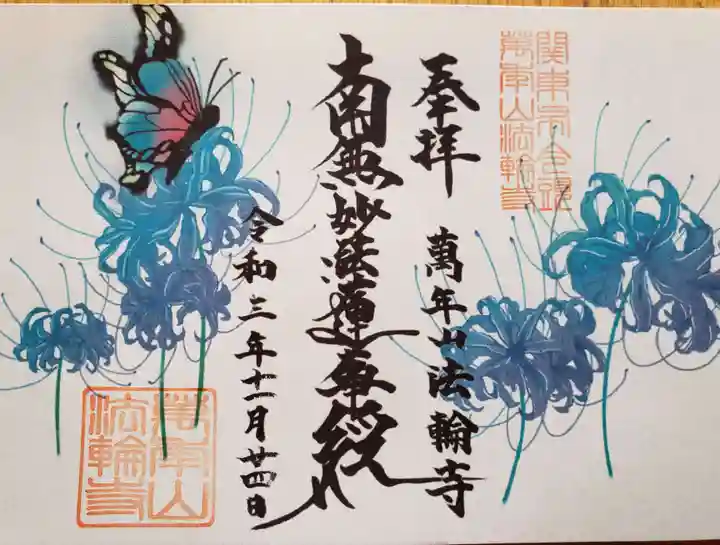 奉拝
萬年山法輪寺
南無妙法蓮華経
令和三年十一月廿四日
萬年山
法輪寺
萬年山法輪寺